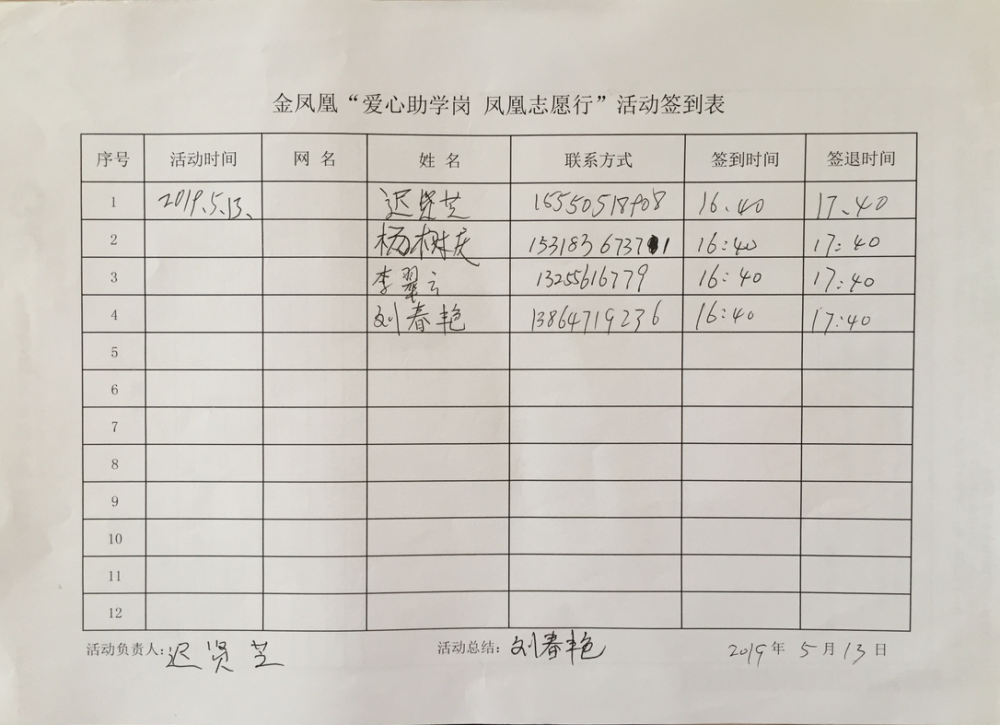 金凤凰“爱心助学岗 凤凰志愿行”活动签到表
序号 活动时间 网 名 姓 名 联系方式 签到时间 签退时间
1 2019.5.13、 迟贤芝 15550518908 16.40 17.40
2 杨树庆 1531836737 1 16:40 17:40
3 李翠云 13255616779 16:40 17:40
4 刘春艳 13864719236 16:40 17:40
5
6
7
8
9
10
11
12
活动负责人:迟贤芝 活动总结:刘春艳 2019年 5月13日